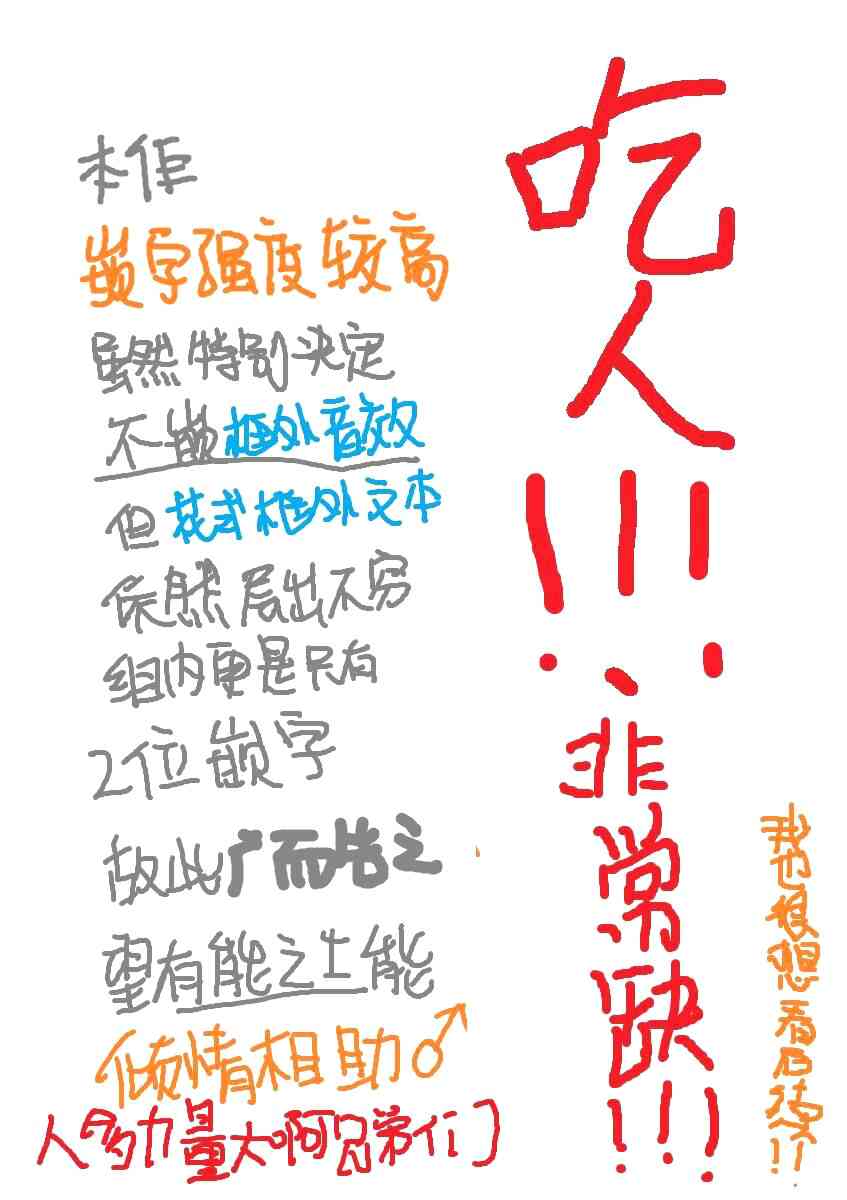 吃人!!!
非常缺!!!
本作
嵌字强度较高
虽然特别决定
不嵌框外音效
但花式框外文本
依然层出不穷
组内更是只有
2位嵌字
故此广而告之
望有能之士能
倾情相助♂
人多力量大啊兄弟们
我也很想看后续!!